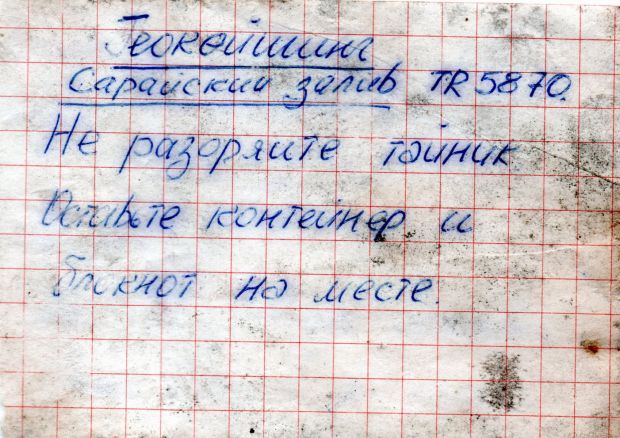 Геокейшинг
Сарайский залив TR 5870.
Не разоряйте тайник
Оставьте контейнер и
блокнот на месте.